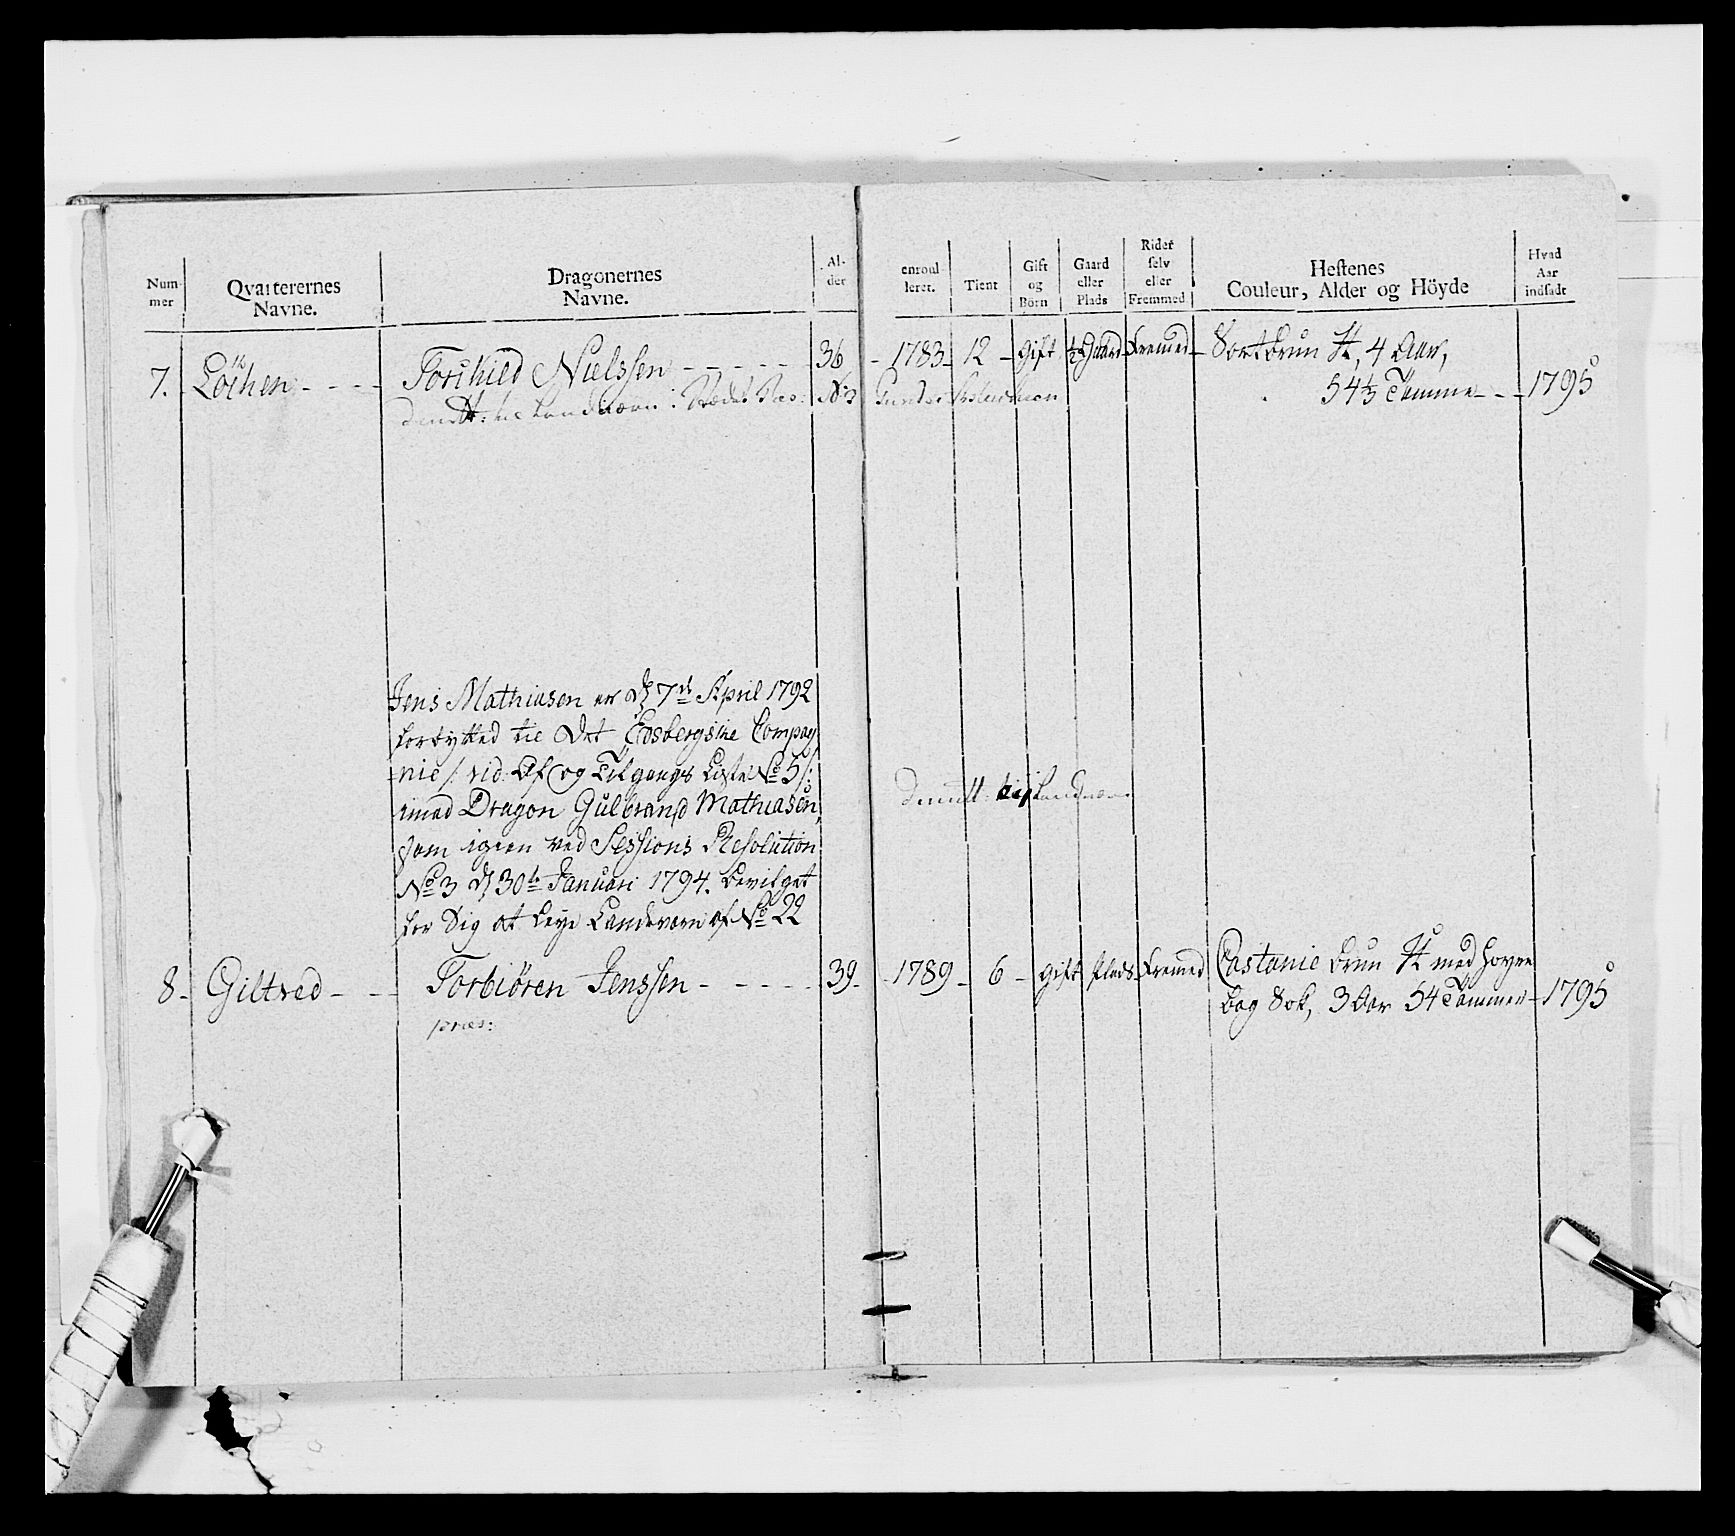 Num-
mer
Qvarterernes
Navne.
Dragonernes
Navne.
Al-
der
enroul-
leret.
Tient
Gift
og
Börn
Gaard
eller
Plads
Rider
selv
eller
Fremmed
Hestenes
Couleur, Alder og Höyde
Hvad
Aar
indsadt
7. Löchen - - - - Torchild Nielssen - - - - - - 36 - 1783 - 12 - Gift ½ Gaard Fremed - Sortbrun H, 4 Aar,
54½ Tomme - - - 1795
til Landværn: Stædet Præs: No 3 Gunder
Jens Mathiasen er d 7de April 1792
forbytted til det Edsbergske Compag
nie /: vid: Af og Tilgangs Liste No 5 /:
imod Dragon Gulbrand Mathiasen,
som igien ved Sessions Resolution
No 3 d 30te Januari 1794. bevilget
for Sig at leye Landværn af No 22
dimitt: til Landværn
8 - Giltved - - - Torbiören Jenssen - - - - - 39 - - 1789 - 6 - gift plads Fremed Castanie brun H med hoyre
bag Sok, 3 Aar 54 Tommer - 1795
præs: